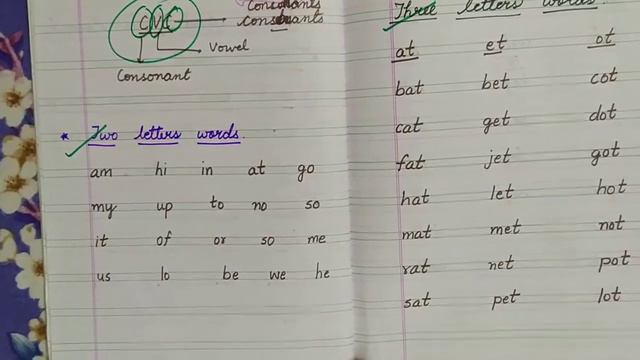 Consonants
CVC consonants
Vowel
Consonant
* Two letters words.
am hi in at go
my up to no so
it of or so me
us lo be we he
Three letters words.
at et ot
bat bet cot
cat get dot
fat jet got
hat let hot
mat met not
rat net pot
sat pet lot